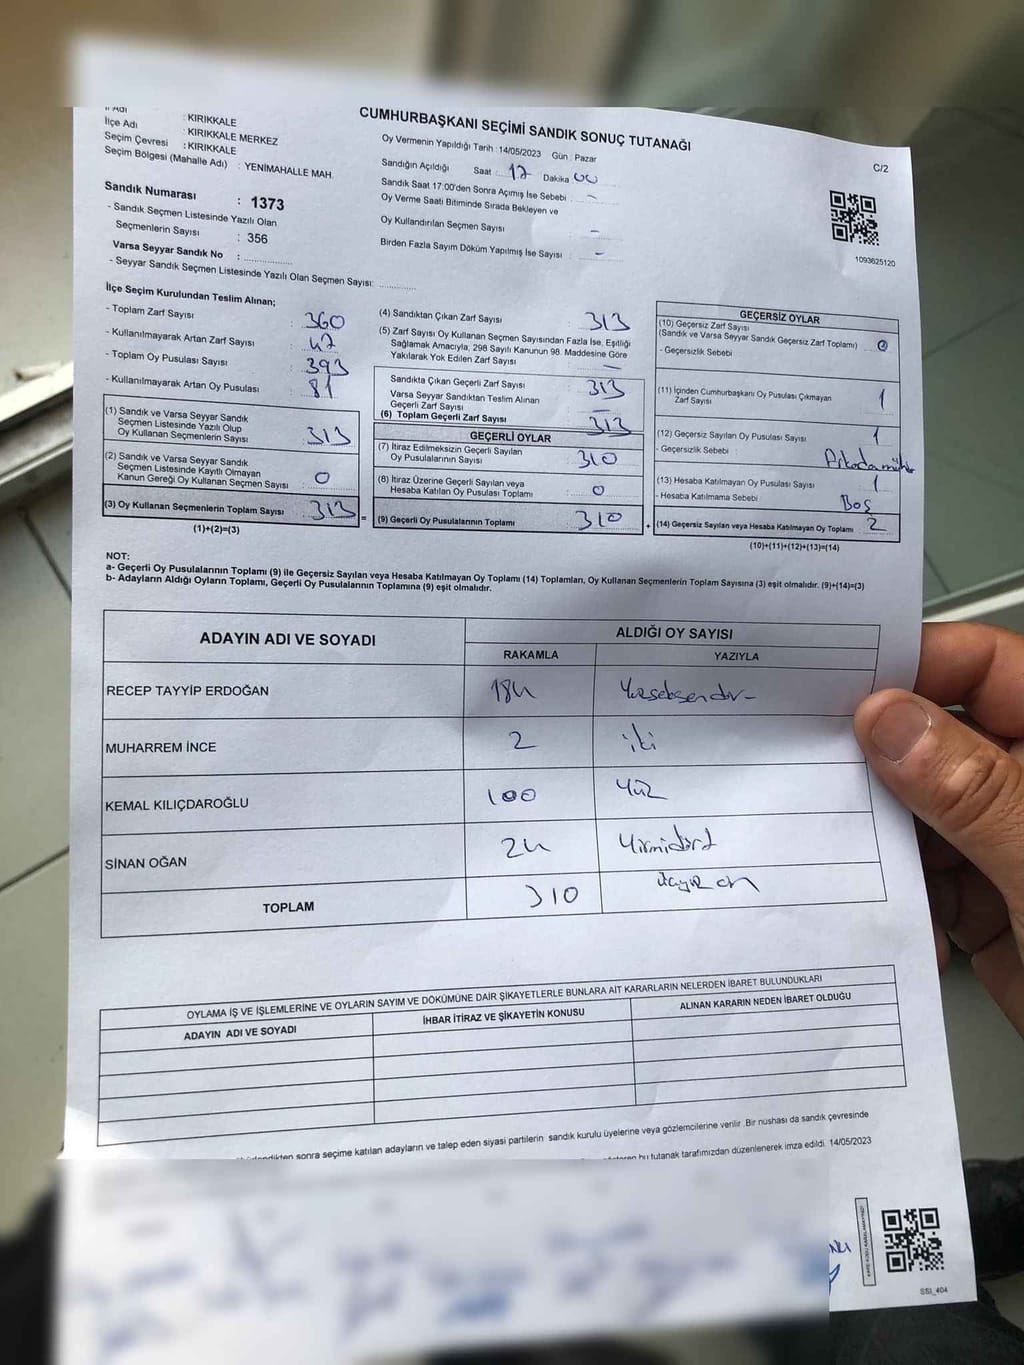 CUMHURBAŞKANI SEÇİMİ SANDIK SONUÇ TUTANAĞI
C/2
: KIRIKKALE
İlçe Adı : KIRIKKALE MERKEZ
Seçim Çevresi : KIRIKKALE
Seçim Bölgesi (Mahalle Adı) : YENİMAHALLE MAH.
Sandık Numarası : 1373
- Sandık Seçmen Listesinde Yazılı Olan
Seçmenlerin Sayısı : 356
Varsa Seyyar Sandık No :
- Seyyar Sandık Seçmen Listesinde Yazılı Olan Seçmen Sayısı:
Oy Vermenin Yapıldığı Tarih : 14/05/2023 Gün : Pazar
Sandığın Açıldığı Saat : 17 Dakika 00
Sandık Saat 17:00'den Sonra Açımış İse Sebebi : -
Oy Verme Saati Bitiminde Sırada Bekleyen ve
Oy Kullandırılan Seçmen Sayısı -
Birden Fazla Sayım Döküm Yapılmış İse Sayısı : -
1093625120
İlçe Seçim Kurulundan Teslim Alınan;
- Toplam Zarf Sayısı : 360
- Kullanılmayarak Artan Zarf Sayısı : 47
- Toplam Oy Pusulası Sayısı : 393
- Kullanılmayarak Artan Oy Pusulası : 81
(1) Sandık ve Varsa Seyyar Sandık
Seçmen Listesinde Yazılı Olup
Oy Kullanan Seçmenlerin Sayısı : 313
(2) Sandık ve Varsa Seyyar Sandık
Seçmen Listesinde Kayıtlı Olmayan
Kanun Gereği Oy Kullanan Seçmen Sayısı : 0
(3) Oy Kullanan Seçmenlerin Toplam Sayısı : 313
(1)+(2)=(3)
=
(4) Sandıktan Çıkan Zarf Sayısı : 313
(5) Zarf Sayısı Oy Kullanan Seçmen Sayısından Fazla İse, Eşitliği
Sağlamak Amacıyla, 298 Sayılı Kanunun 98. Maddesine Göre
Yakılarak Yok Edilen Zarf Sayısı : -
Sandıkta Çıkan Geçerli Zarf Sayısı : 313
Varsa Seyyar Sandıktan Teslim Alınan
Geçerli Zarf Sayısı : -
(6) Toplam Geçerli Zarf Sayısı : 313
GEÇERLİ OYLAR
(7) İtiraz Edilmeksizin Geçerli Sayılan
Oy Pusulalarının Sayısı : 310
(8) İtiraz Üzerine Geçerli Sayılan veya
Hesaba Katılan Oy Pusulası Toplamı : 0
(9) Geçerli Oy Pusulalarının Toplamı : 310
+
GEÇERSİZ OYLAR
(10) Geçersiz Zarf Sayısı
(Sandık ve Varsa Seyyar Sandık Geçersiz Zarf Toplamı) : 0
- Geçersizlik Sebebi
(11) İçinden Cumhurbaşkanı Oy Pusulası Çıkmayan
Zarf Sayısı : 1
(12) Geçersiz Sayılan Oy Pusulası Sayısı : 1
- Geçersizlik Sebebi :
(13) Hesaba Katılmayan Oy Pusulası Sayısı : 1
- Hesaba Katılmama Sebebi Boş
(14) Geçersiz Sayılan veya Hesaba Katılmayan Oy Toplamı : 2
(10)+(11)+(12)+(13)=(14)
NOT:
a- Geçerli Oy Pusulalarının Toplamı (9) ile Geçersiz Sayılan veya Hesaba Katılmayan Oy Toplamı (14) Toplamları, Oy Kullanan Seçmenlerin Toplam Sayısına (3) eşit olmalıdır. (9)+(14)=(3)
b- Adayların Aldığı Oyların Toplamı, Geçerli Oy Pusulalarının Toplamına (9) eşit olmalıdır.
ADAYIN ADI VE SOYADI
ALDIĞI OY SAYISI
RAKAMLA YAZIYLA
RECEP TAYYİP ERDOĞAN 184 Yüzseksendört
MUHARREM İNCE 2 iki
KEMAL KILIÇDAROĞLU 100 Yüz
SİNAN OĞAN 24 Yirmidört
TOPLAM 310 üçyüz on
OYLAMA İŞ VE İŞLEMLERİNE VE OYLARIN SAYIM VE DÖKÜMÜNE DAİR ŞİKAYETLERLE BUNLARA AİT KARARLARIN NELERDEN İBARET BULUNDUKLARI
ADAYIN ADI VE SOYADI İHBAR İTİRAZ VE ŞİKAYETİN KONUSU ALINAN KARARIN NEDEN İBARET OLDUĞU
sonra seçime katılan adayların ve talep eden siyasi partilerin sandık kurulu üyelerine veya gözlemcilerine verilir. Bir nüshası da sandık çevresinde
bu tutanak tarafımızdan düzenlenerek imza edildi. 14/05/2023
SSI_404